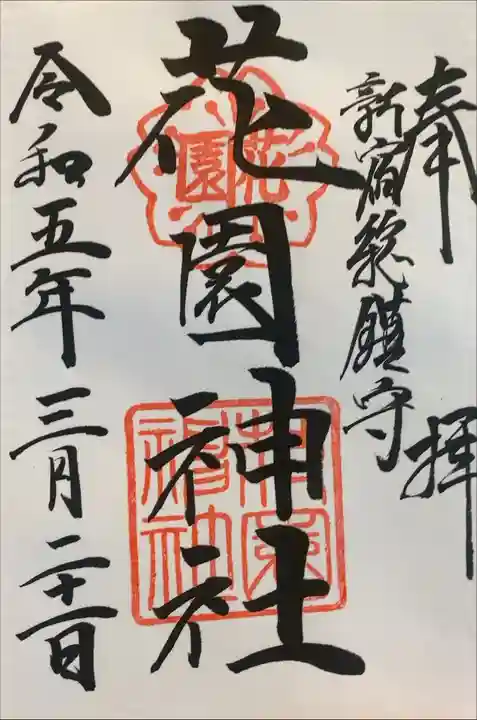 奉拝
新宿総鎮守
花園神社
令和五年三月二十一日
花園
花園神社